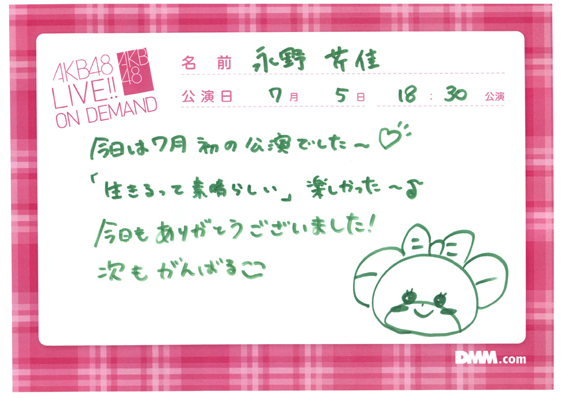 AKB48
LIVE!!
ON DEMAND
AKB
48
名前 永野 芹佳
公演日 7月 5日 18:30 公演
今日は7月初の公演でした〜♡
「生きるって素晴らしい」楽しかった〜♪
今日もありがとうございました!
次もがんばる
DMM.com